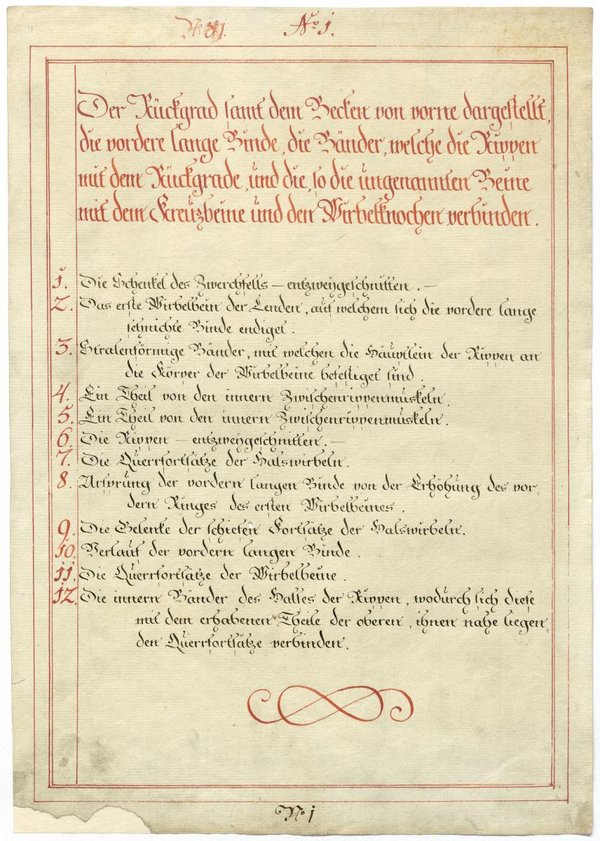 No. 81. No. 1.
Der Rückgrad samt dem Becken von vorne dargestellt,
die vordere lange Binde, die Bänder, welche die Rippen
mit dem Rückgrade, und die, so die ungenannten Beine
mit dem Kreuzbeine und den Wirbelknochen verbinden.
1. Die Schenkel des Zwerchfells – entzweygeschnitten. –
2. Das erste Wirbelbein der Lenden, auf welchem sich die vordere lange
sehnichte Binde endiget.
3. Stralenförmige Bänder, mit welchen die Häuptlein der Rippen an
die Körper der Wirbelbeine befestiget sind.
4. Ein Theil von den innern Zwischenrippenmuskeln.
5. Ein Theil von den innern Zwischenrippenmuskeln.
6. Die Rippen – entzweygeschnitten. –
7. Die Querrfortsätze der Halswirbeln.
8. Ursprung der vordern langen Binde von der Erhöhung des vor-
dern Ringes des ersten Wirbelbeines.
9. Die Gelenke der schiefen Fortsätze der Halswirbeln.
10. Verlauf der vordern langen Binde.
11. Die Querrfortsätze der Wirbelbeine.
12. Die innern Bänder des Halses der Rippen, wodurch sich diese
mit dem erhabenen Theile der oberen, ihnen nahe liegen-
den Querrfortsätze verbinden.
No. 1